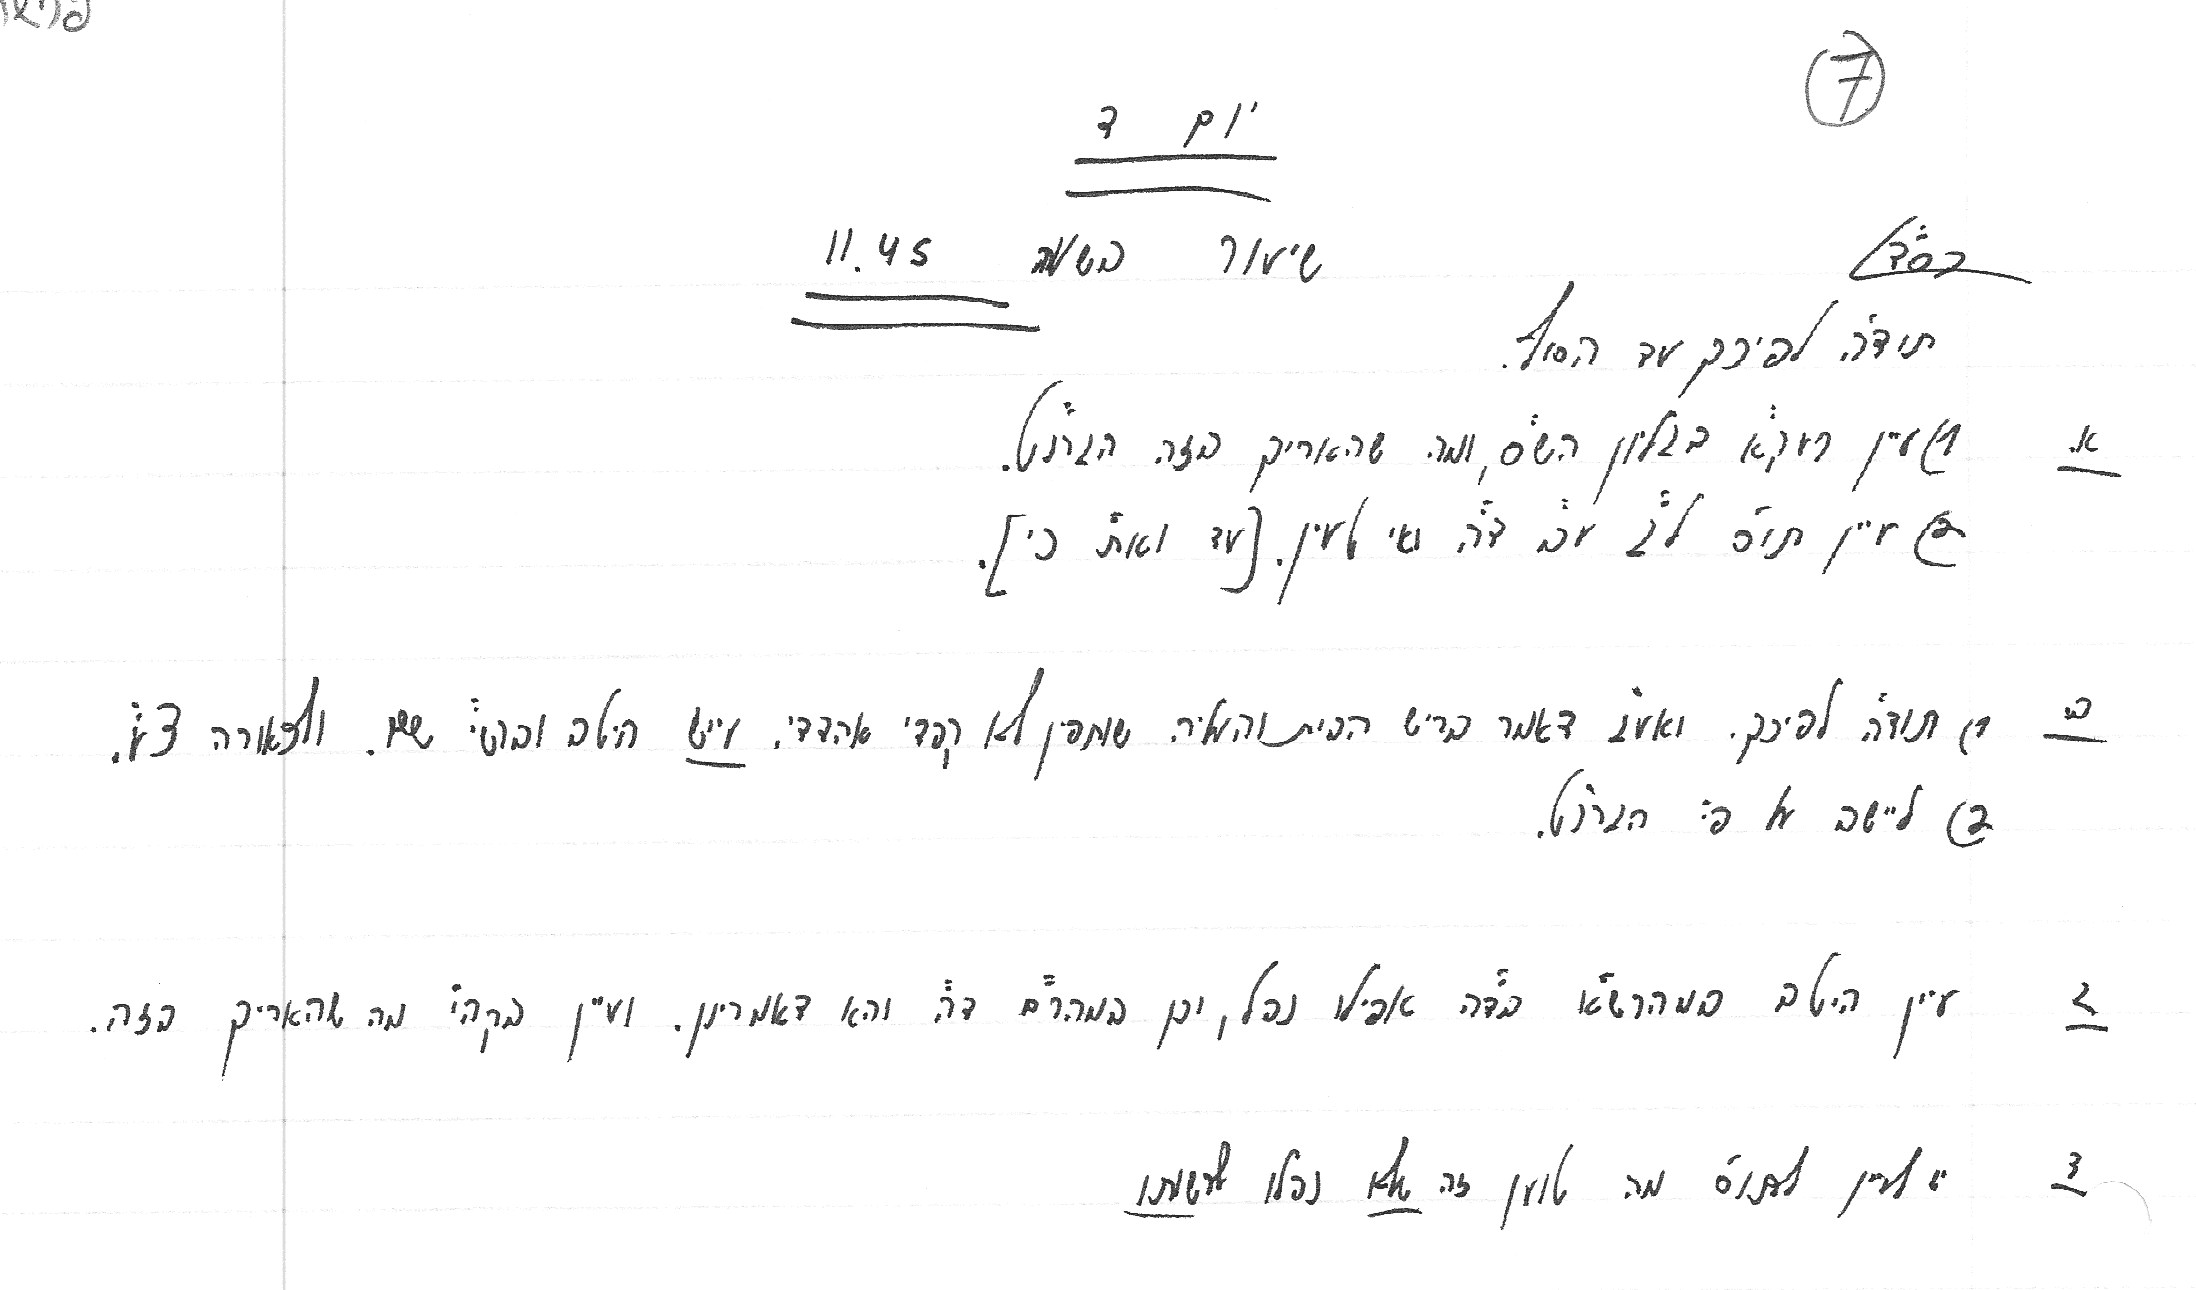 7
יום ד
בס"ד
שיעור בשעה 11.45
תוד"ה לפיכך עד הסוף.
א. 1) עיין רעק"א בגליון הש"ס, ומה שהאריך בזה הגרנ"ט.
2) עיין תוס' ל"ג ע"ב ד"ה ואי טעין. [עד וא"ת כי].
ב. 1) תוד"ה לפיכך. ואע"ג דאמר בריש הבית והעליה שותפין לא קפדי אהדדי. עיי"ש היטב וברש"י שם. ולכאורה צ"ע.
2) ליישב על פי הגרנ"ט.
ג. עיין היטב במהרש"א בד"ה אפילו נפל, וכן במהר"ם ד"ה והא דאמרינן. ועיין בקה"י מה שהאריך בזה.
ד. יש לעיין לתוס' מה טוען זה שלא נפלו לרשותו